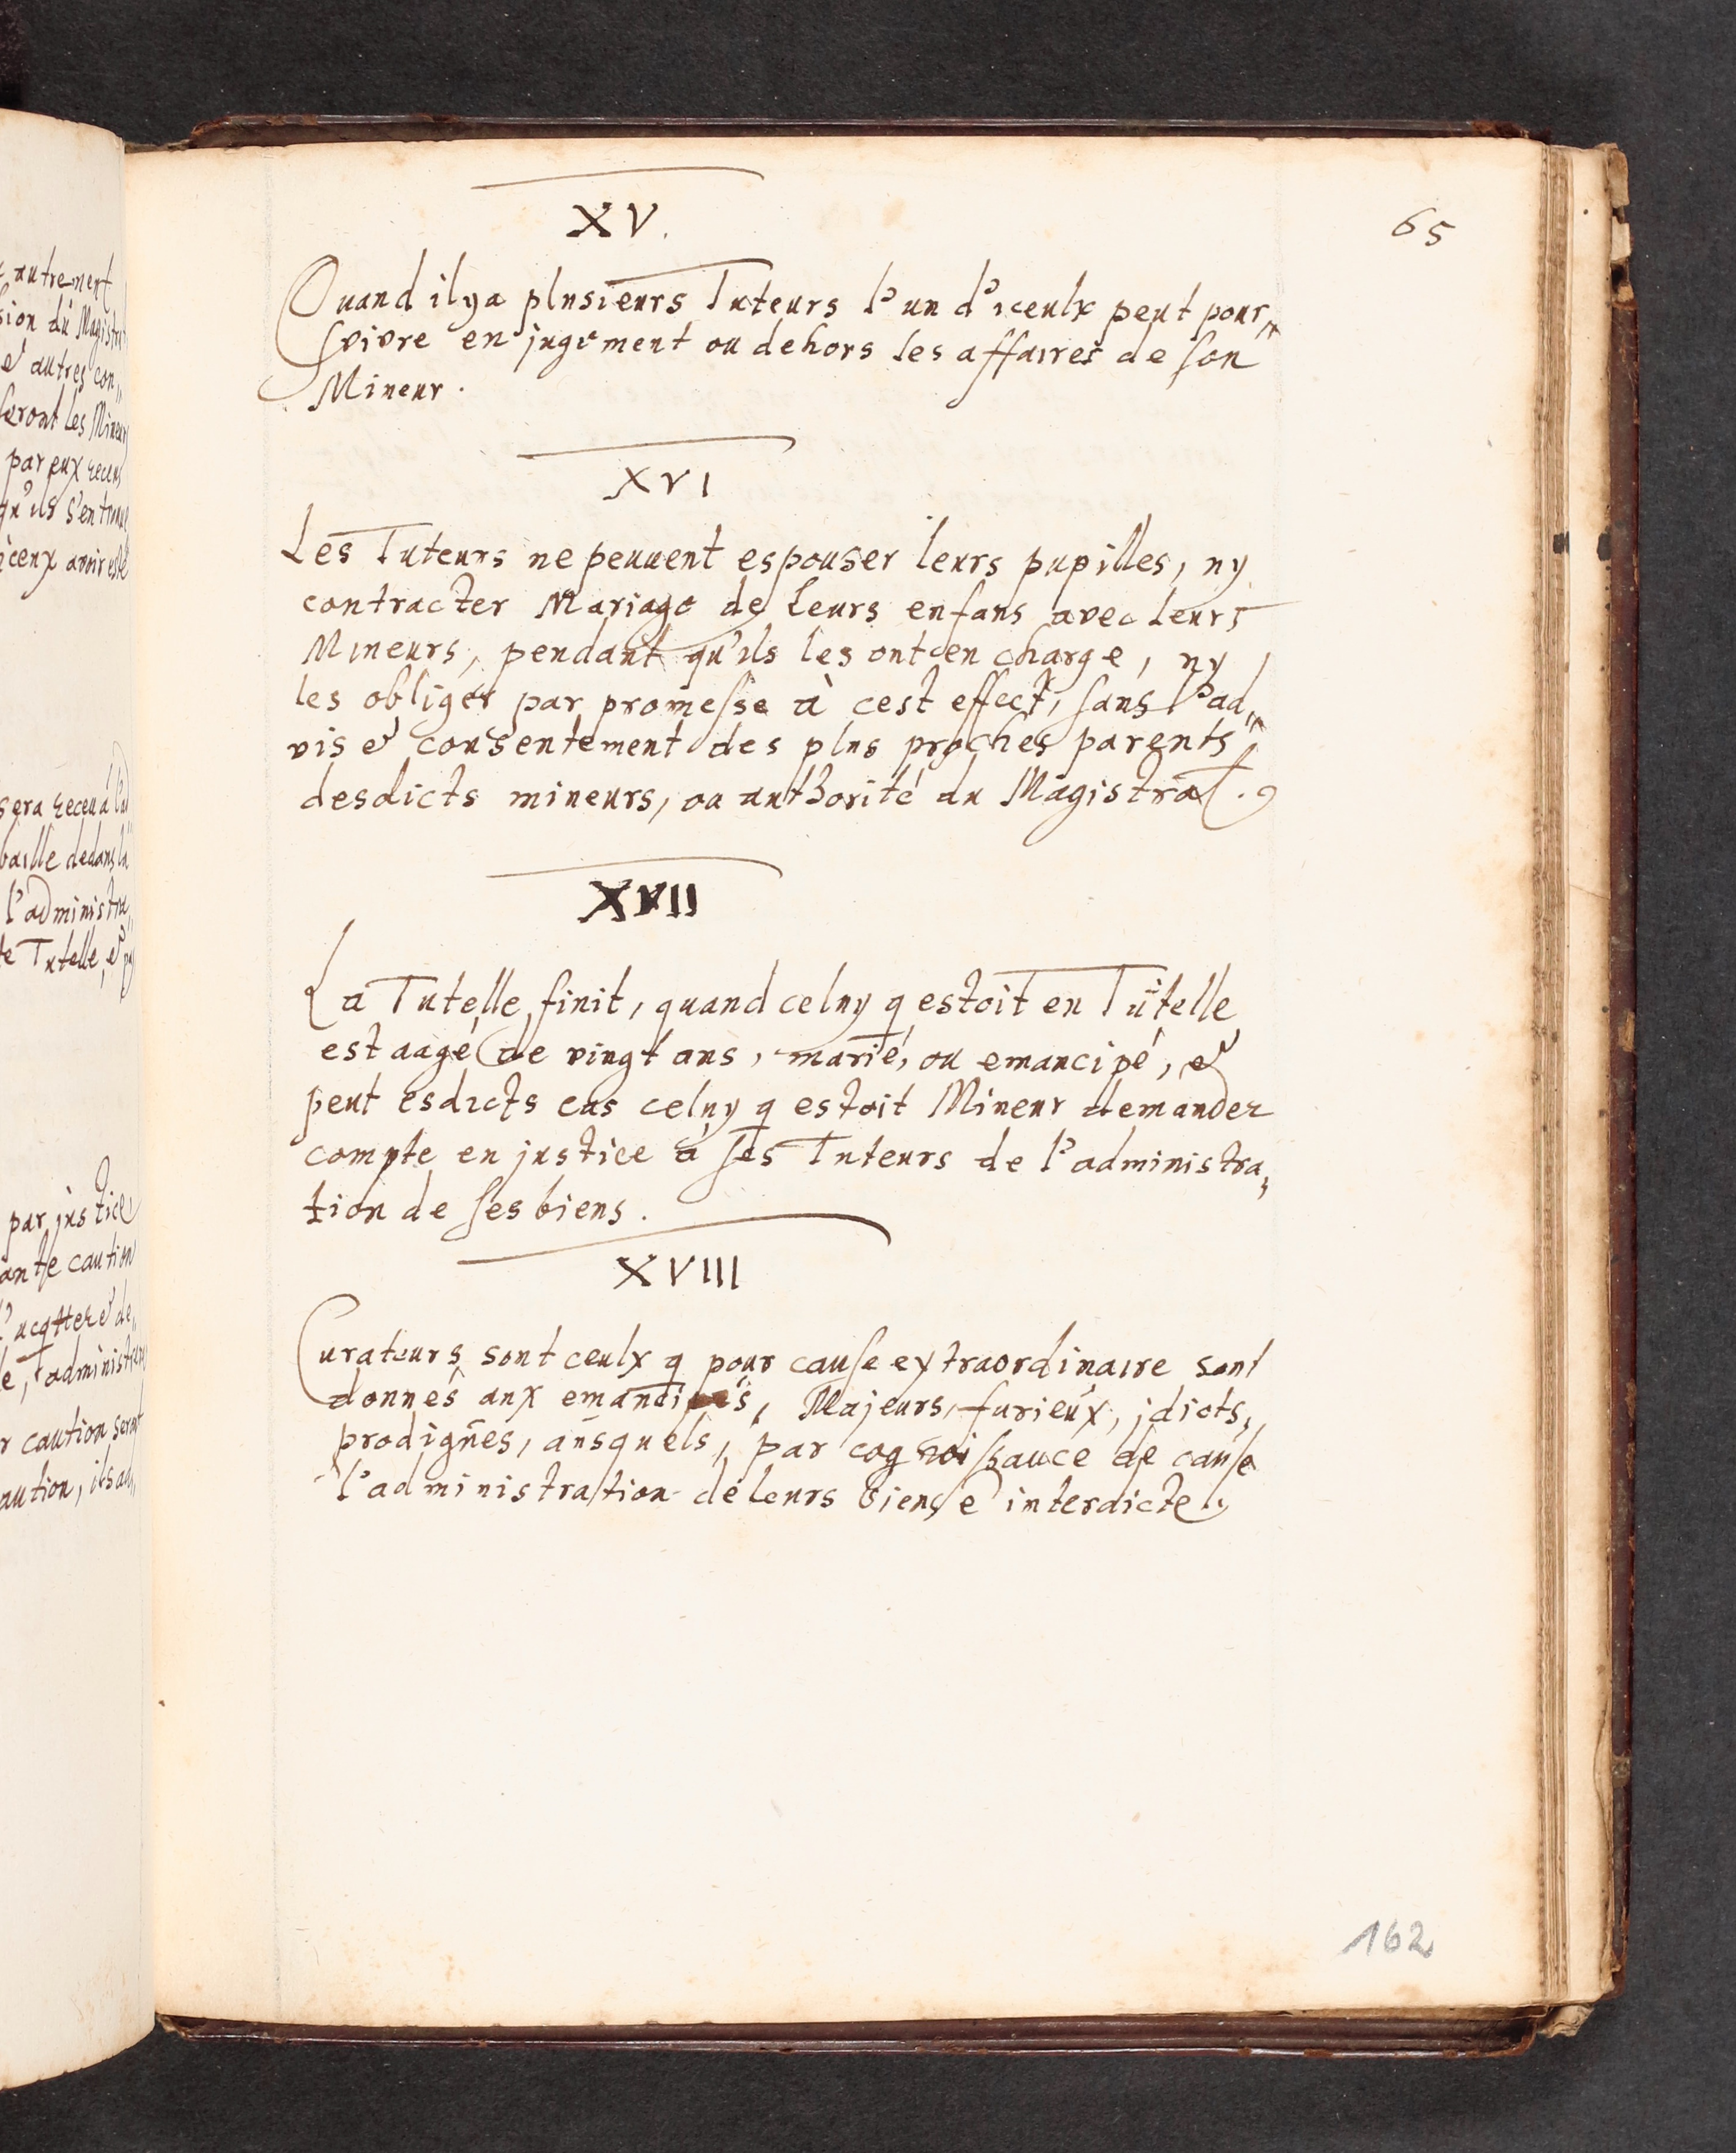 65
XV.
Quand il y a plusieurs Tuteurs l'un d'iceulx peut pour„
suivre en jugement ou dehors les affaires de son
Mineur.
XVI
Les Tuteurs ne peuuent espouser leurs pupilles, ny
contracter Mariage de leurs enfans avec leurs
Mineurs, pendant qu'ils les ont en charge, ny
les obliger par promesse à cest effect, sans l'ad„
vis & consentement des plus proches parents
desdicts mineurs, ou authorité du Magistrat.
XVII
La Tutelle finit, quand celuy q estoit en Tutelle
est aagé de vingt ans, marié, ou emancipé, &
peut esdicts cas celuy q estoit Mineur demander
compte en justice à ses Tuteurs de l'administra„
tion de ses biens.
XVIII
Curateurs sont ceulx q pour cause extraordinaire sont
donnés aux emancipés, Majeurs, furieux, idiots,
prodigues, ausquels, par cognoissance de cause
l'administration de leurs biens é interdicte.
162
autrement
sion du Magistra
& autres con„
seront les Mineurs
par eux receu
qu'ils s'entrem
iceux avoir esté
sera receu à l'ad
baille dedans la
l'administra„
te Tutelle, &
par justice
ante caution
l'acqtter & de„
le, l'administr
r caution seront
aution, ils